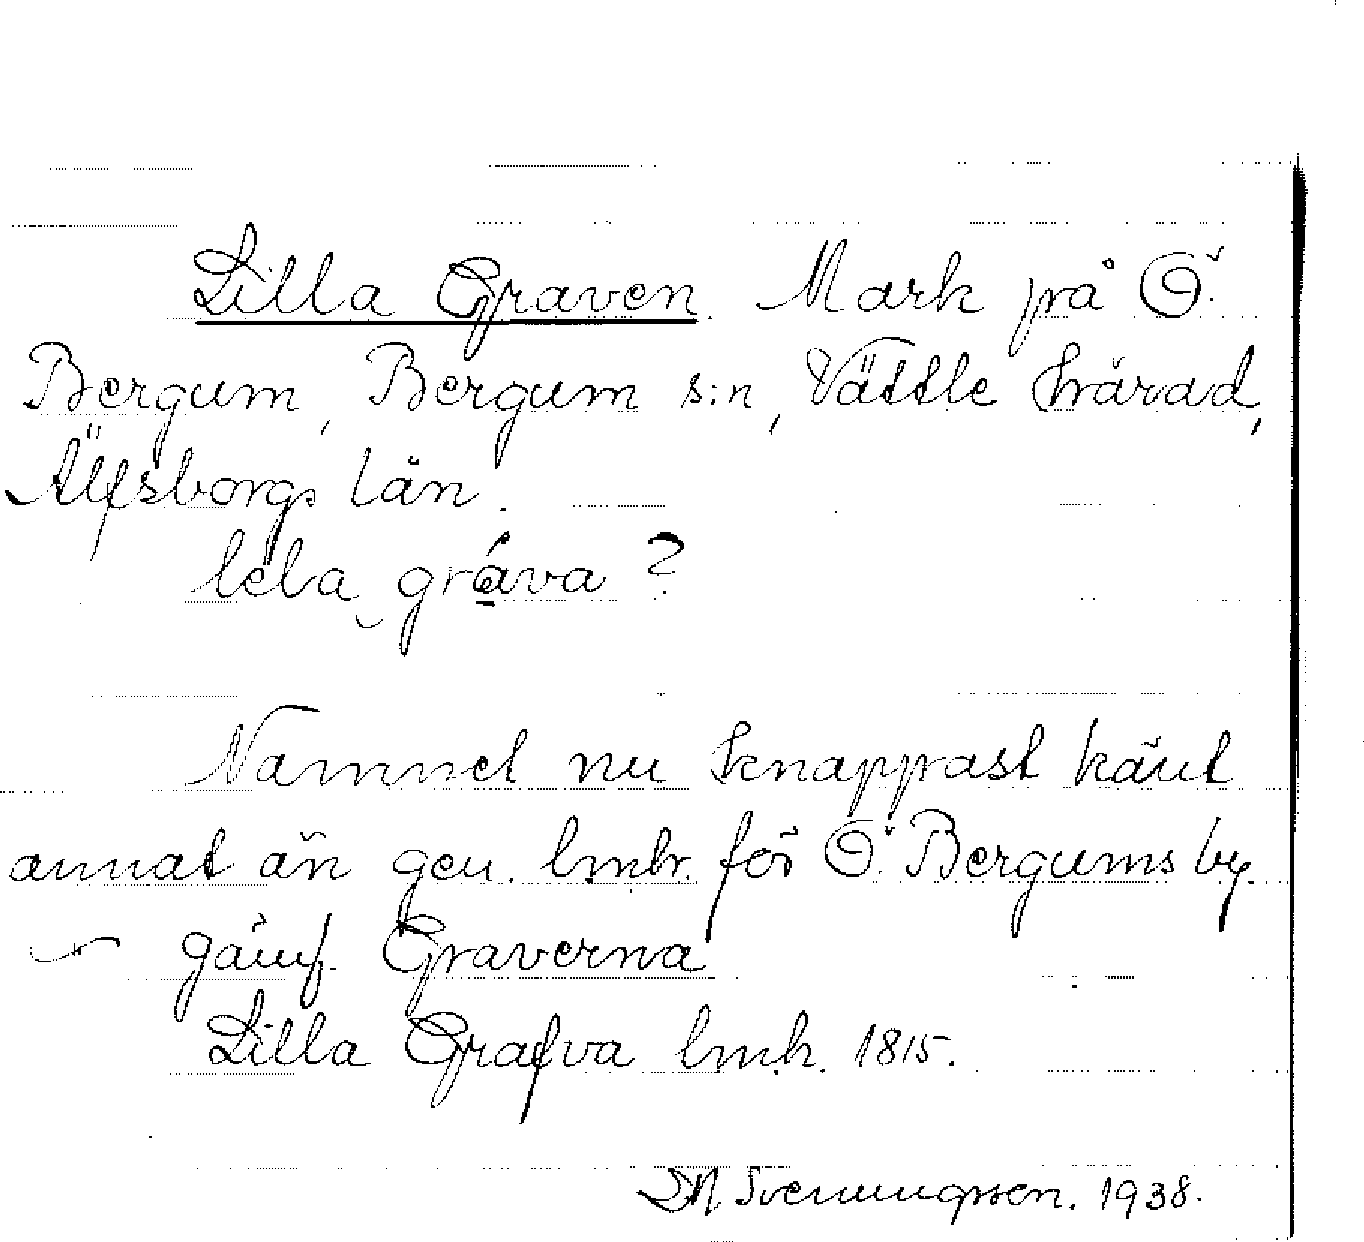 Lilla Graven. Mark på Ö.
Bergum, Bergum s:n, Vättle härad,
Älfsborgs län.
lela gráva ?
Namnet nu knappast känt
annat än gen. lmbr. för Ö. Bergums by.
jämf. Graverna
Lilla Grafva lmh. 1815.
Svenungsson. 1938.